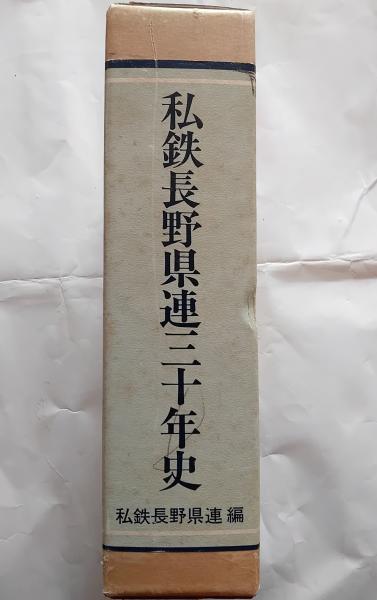 私鉄長野県連三十年史
私鉄長野県連 編